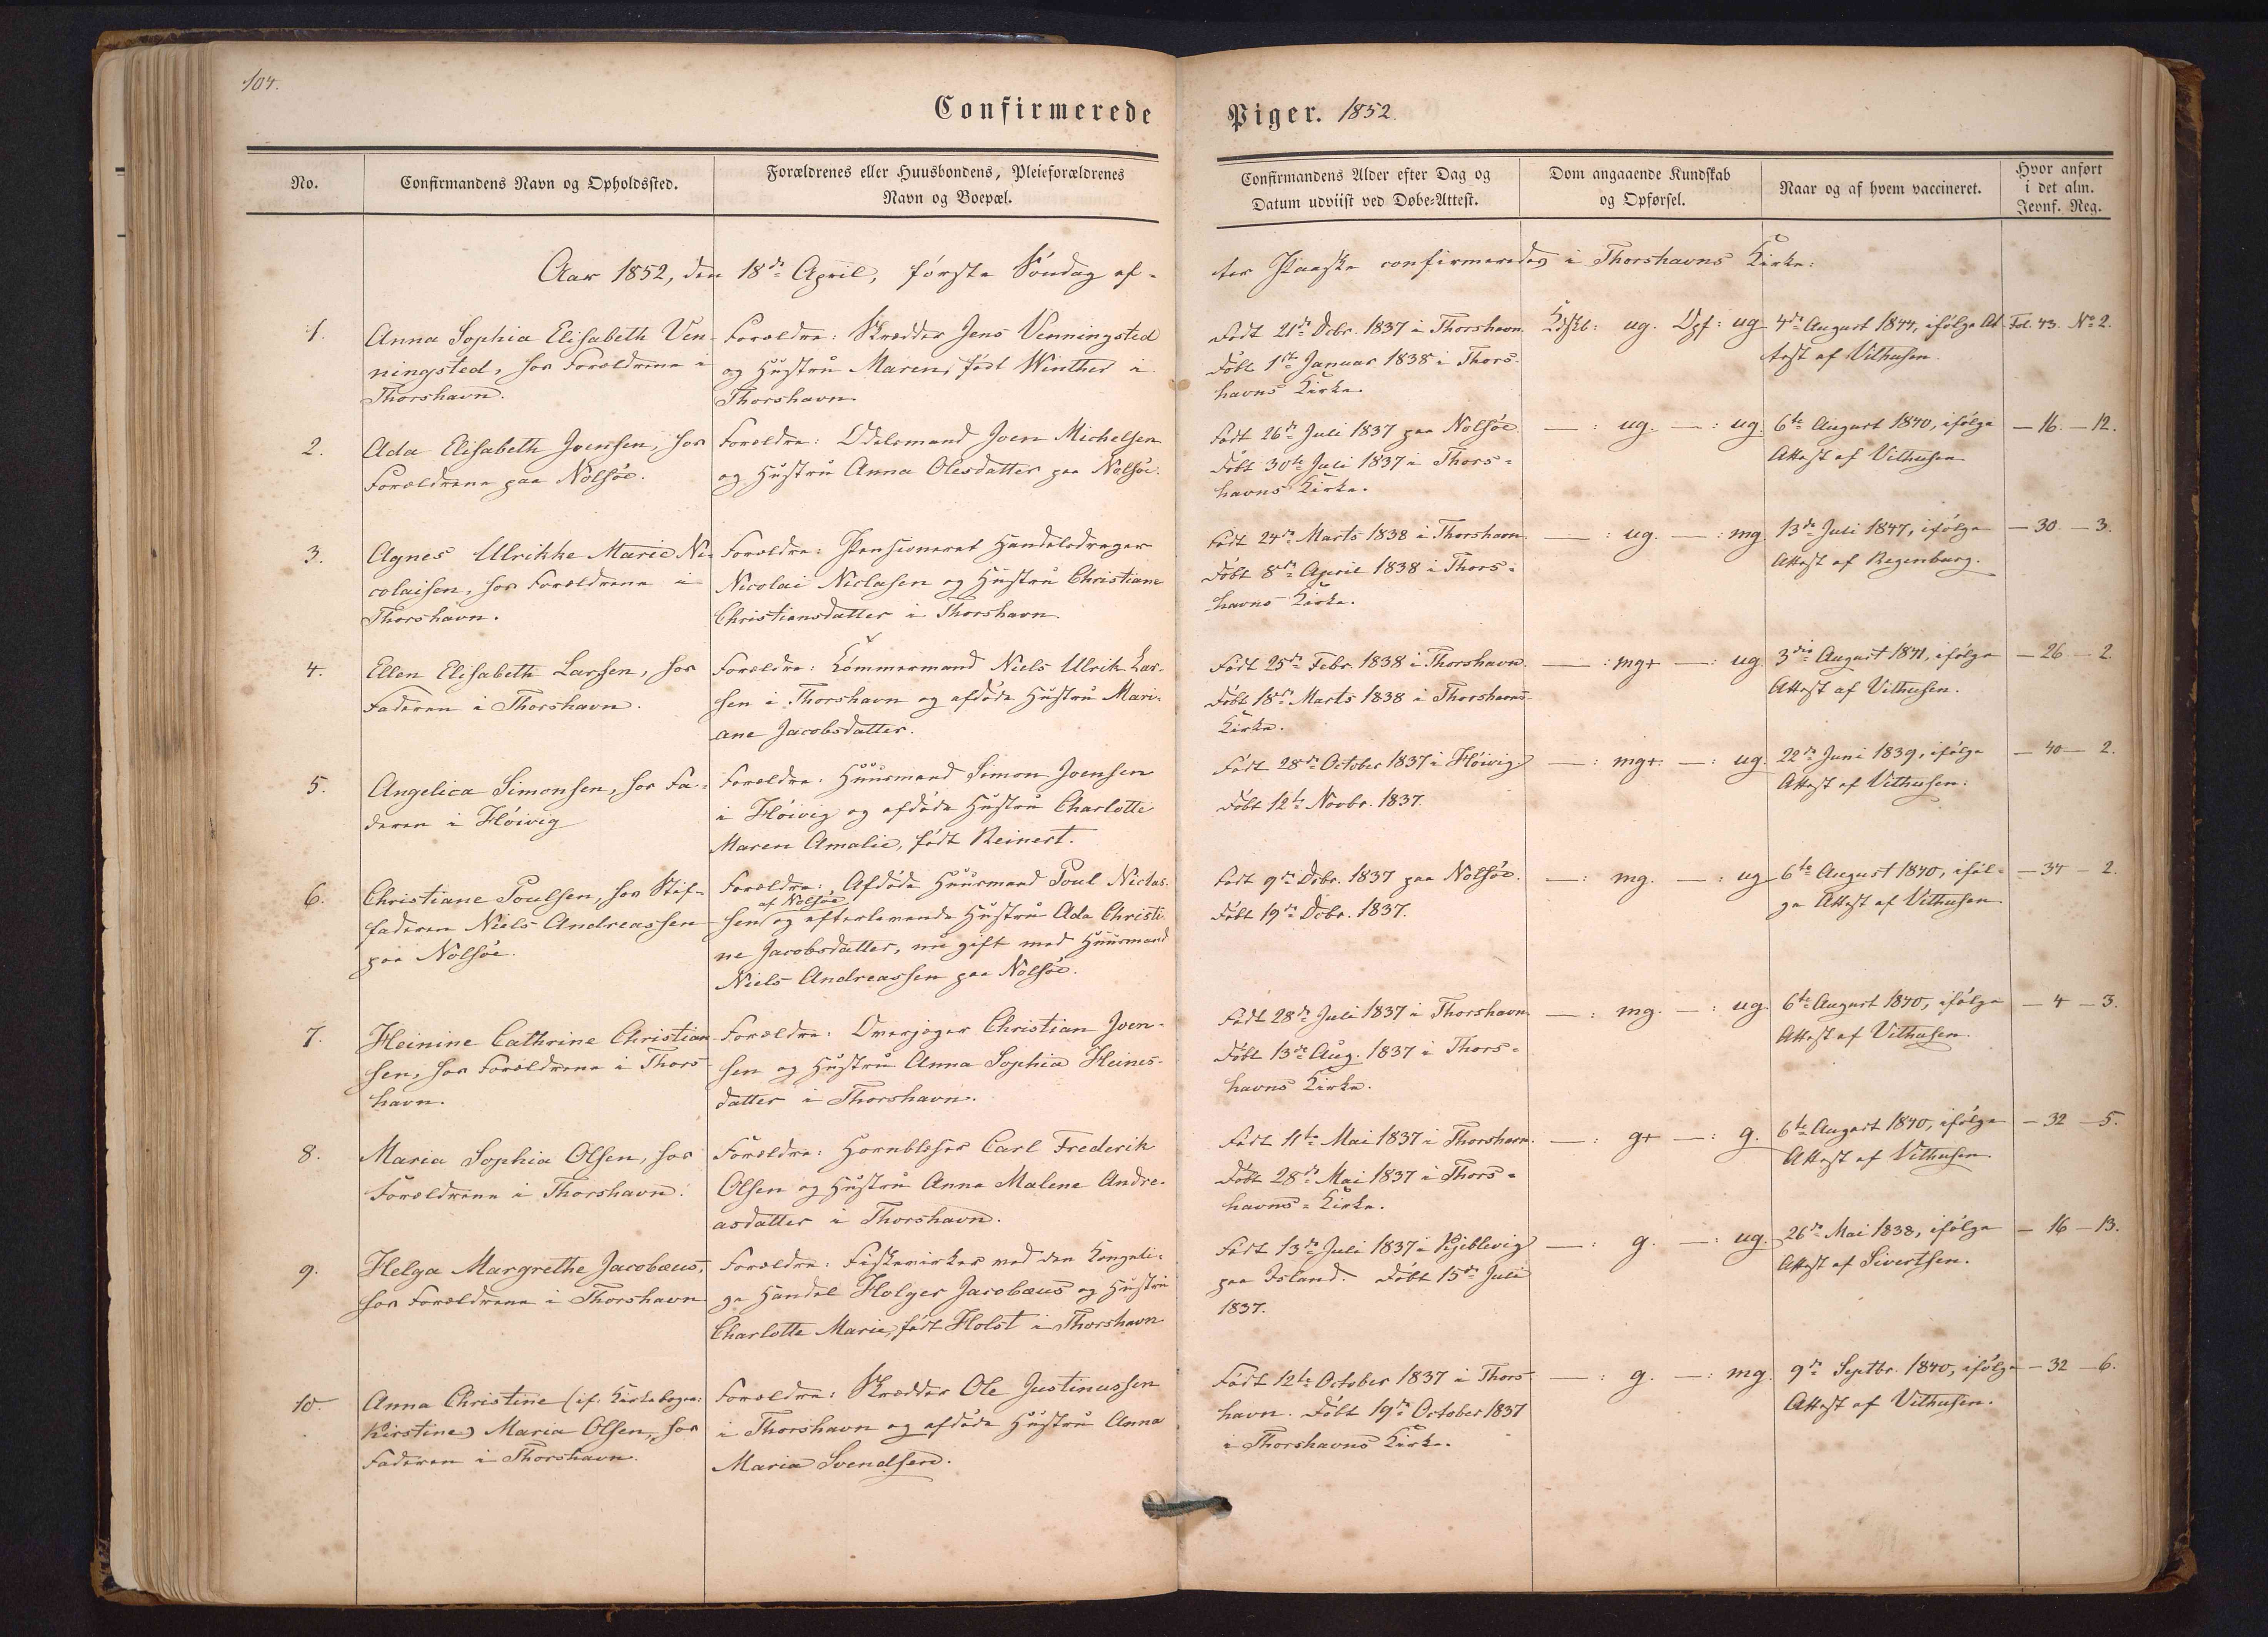 104.
Confirmerede Piger. 1852.
No.
Confirmandens Navn og Opholdssted.
Forældrenes eller Huusbondens, Pleieforældrenes
Navn og Boepæl.
Confirmandens Alder efter Dag og
Datum udviist ved Døbe-Attest.
Dom angaaende Kundskab
og Opførsel.
Naar og af hvem vaccineret.
Hvor anført
i det alm.
Jevnf. Reg.
Aar 1852, den 18de April, første Søndag ef-
ter Paaske confirmeredes i Thorshavns Kirke:
1.
Anna Sophia Elisabeth Ven-
ningsted, hos Forældrene i
Thorshavn.
Forældre: Skrædder Jens Venningsted
og Hustru Maren, født Winther i
Thorshavn
Født 21de Dcbr. 1837 i Thorshavn.
Døbt 1ste Januar 1838 i Thors-
havns Kirke.
Kdskb: ug. Opf: ug
4de August 1844, ifølge At-
test af Vilhusen.
Fol. 43. No 2.
2.
Ada Elisabeth Joensen, hos
Forældrene paa Nolsøe.
Forældre: Odelsmand Joen Michelsen
og Hustru Anna Olesdatter paa Nolsøe.
Født 26de Juli 1837 paa Nolsøe.
Døbt 30te Juli 1837 i Thors-
havns Kirke.
— : ug. — : ug.
6te August 1840, ifølge
Attest af Vilhusen
— 16. — 12.
3.
Agnes Ulrikke Marie Ni-
colaisen, hos Forældrene i
Thorshavn.
Forældre: Pensioneret Handelsdrager
Nicolai Niclasen og Hustru Christiane
Christiansdatter i Thorshavn.
Født 24de Marts 1838 i Thorshavn.
Døbt 8de April 1838 i Thors-
havns Kirke.
— : ug. — : mg
13de Juli 1847, ifølge
Attest af Regenburg.
— 30. — 3.
4.
Ellen Elisabeth Larssen, hos
Faderen i Thorshavn.
Forældre: Tømmermand Niels Ulrik Lar-
sen i Thorshavn og afdøde Hustru Mari-
ane Jacobsdatter.
Født 25de Febr. 1838 i Thorshavn.
Døbt 18de Marts 1838 i Thorshavns
Kirke.
— : mg+ — : ug.
3die August 1841, ifølge
Attest af Vilhusen.
— 26 — 2.
5.
Angelica Simonsen, hos Fa-
deren i Høivig
Forældre: Huusmand Simon Joensen
i Høivig og afdøde Hustru Charlotte
Maren Amalie, født Reinert.
Født 28de October 1837 i Høivig
Døbt 12te Novbr. 1837.
— : mg+. — : ug.
22de Juni 1839, ifølge
Attest af Vilhusen.
— 40 — 2.
6.
Christiane Poulsen, hos Stif-
faderen Niels Andreassen
paa Nolsøe.
Forældre: Afdøde Huusmand Poul Niclas-
af Nolsøe
sen og efterlevende Hustru Ada Christi-
ne Jacobsdatter, nu gift med Huusmand
Niels Andreassen paa Nolsøe.
Født 9de Dcbr. 1837 paa Nolsøe.
Døbt 19de Dcbr. 1837.
— : mg. — : ug
6te August 1840, iføl-
ge Attest af Vilhusen
— 34 — 2.
7.
Heinine Cathrine Christian-
sen, hos Forældrene i Thors-
havn.
Forældre: Overjæger Christian Joen-
sen og Hustru Anna Sophia Heines-
datter i Thorshavn.
Født 28de Juli 1837 i Thorshavn
Døbt 13de Aug. 1837 i Thors-
havns Kirke.
— : mg. — : ug.
6te August 1840, ifølge
Attest af Vilhusen.
— 4 — 3.
8.
Maria Sophia Olsen, hos
Forældrene i Thorshavn.
Forældre: Hornblæser Carl Frederik
Olsen og Hustru Anna Malene Andre-
asdatter i Thorshavn.
Født 11te Mai 1837 i Thorshavn.
Døbt 28de Mai 1837 i Thors-
havns-Kirke.
— : g+ — : g.
6te August 1840, ifølge
Attest af Vilhusen
— 32 — 5.
9.
Helga Margrethe Jacobæus,
hos Forældrene i Thorshavn
Forældre: Fiskevirker ved den Kongeli-
ge Handel Holger Jacobæus og Hustru
Charlotte Marie, født Holst i Thorshavn
Født 13de Juli 1837 i Kjeblevig
paa Island. Døbt 15de Juli
1837.
— : g. — : ug.
26de Mai 1838, ifølge
Attest af Sivertsen.
— 16 — 13.
10.
Anna Christine (if. Kirkebogen:
Kirstine) Maria Olsen, hos
Faderen i Thorshavn.
Forældre: Skrædder Ole Justinussen
i Thorshavn og afdøde Hustru Anna
Maria Svendsen.
Født 12te October 1837 i Thors-
havn. Døbt 19de October 1837
i Thorshavns Kirke.
— : g. — : mg.
9de Septbr. 1840, ifølge
Attest af Vilhusen.
— 32 — 6.